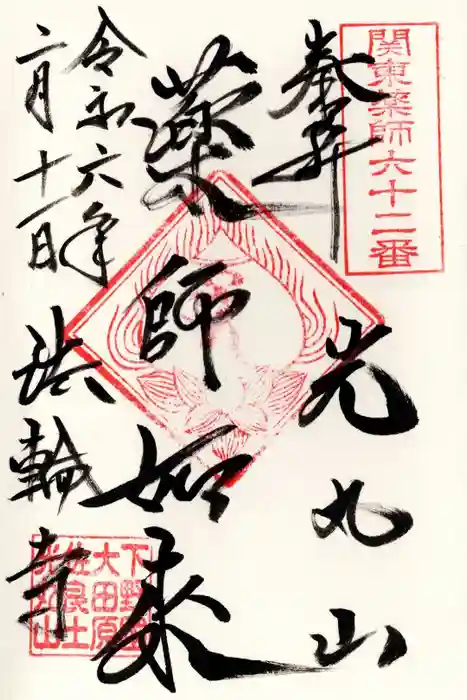 関東薬師六十二番
奉拝
光丸山
薬師如来
令和六年
二月十一日
法輪寺
下野国
大田原
佐良土
光丸山